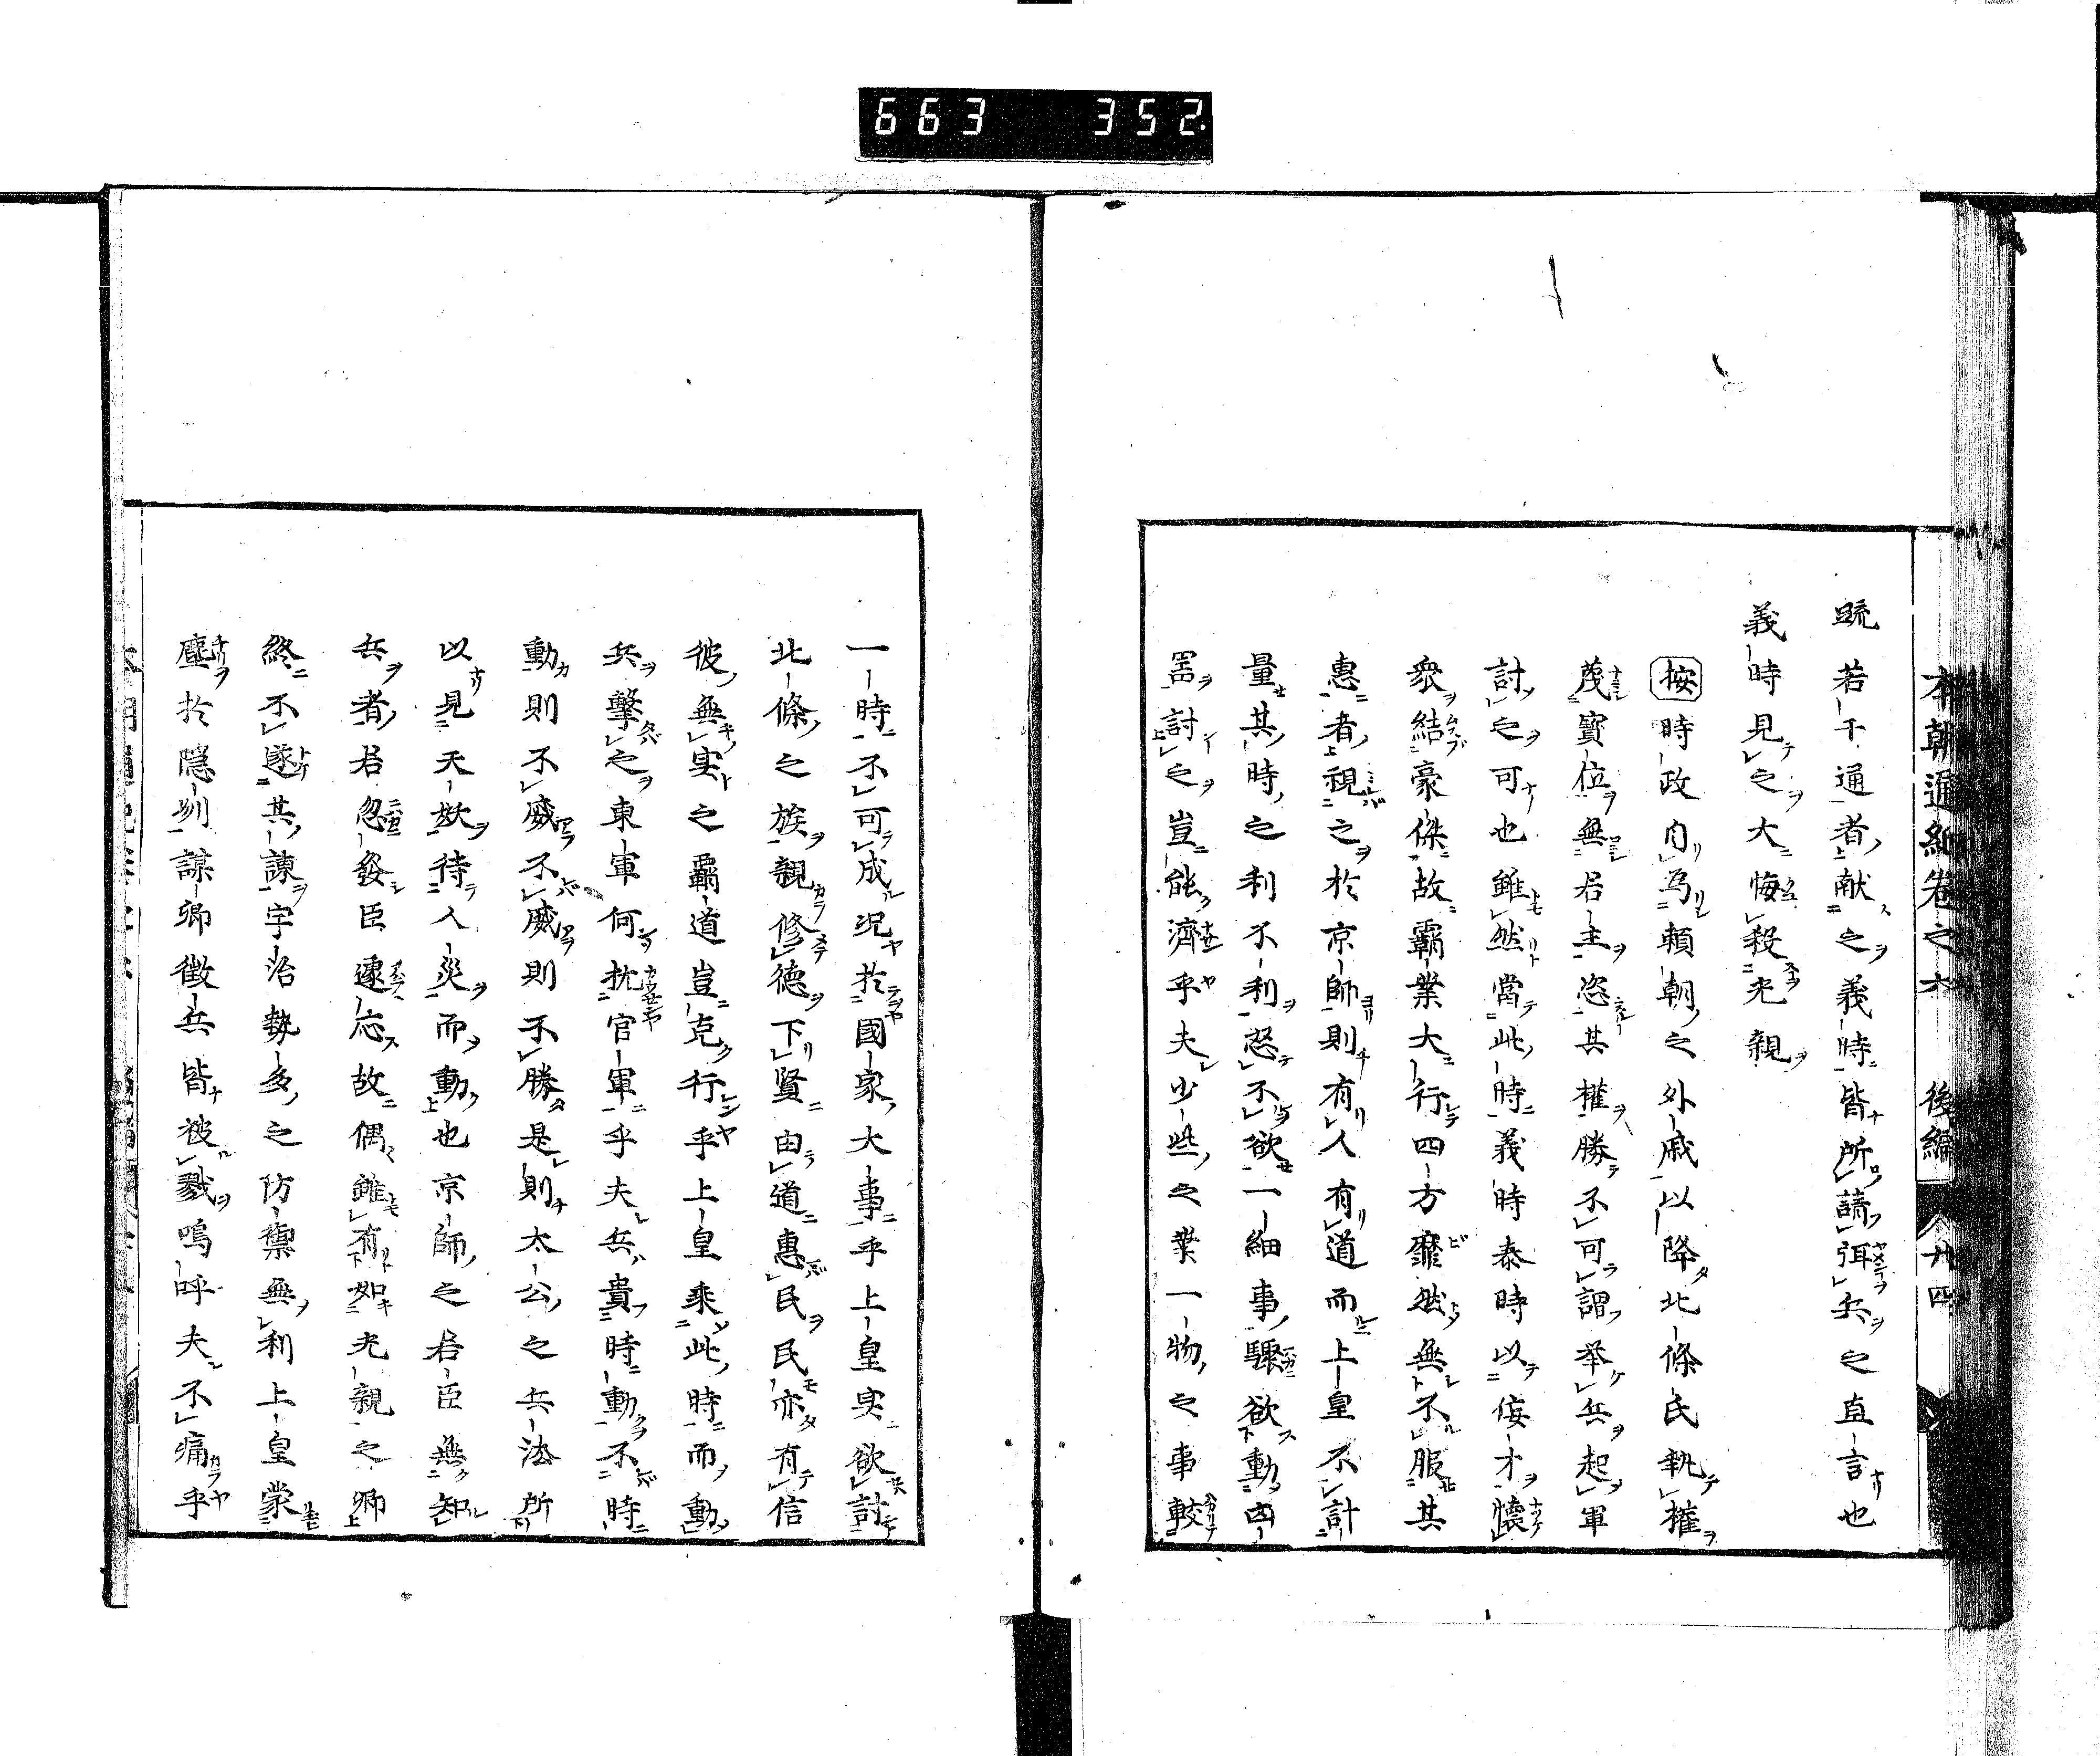 663 352
本朝通紀卷之六 後編 廿四
䟽若干通者献之義時皆所請弭兵之直言也
義時見之大悔殺光親
按時政内為頼朝之外戚以降北條氏執權
蔑寳位無君主恣其權勝不可謂挙兵起軍
討之可也雖然當此時義時泰時以侫才懷
衆結豪傑故覇業大行四方靡然無不服其
惠者視之於京師則有人有道而上皇不計
量其時之利不利忍不欲一細事驟欲動四
討之豈能濟乎夫少些之業一物之事較
一時不可成况於國家大事乎上皇実欲計
北條之族親修德下賢由道惠民民亦有信
彼無実之覇道豈克行乎上皇乘此時而動
兵擊之東軍何抗官軍乎夫兵貴時動不時
動則不威不威則不勝是則太公之兵法所
以見天待人災而動也京師之君臣無知
兵者君忽發臣遽応故偶雖有如光親之卿
終不遂其諫宇治勢多之防禦無利上皇蒙
塵於隠列謀卿徴兵皆被戮嗚呼夫不痛乎